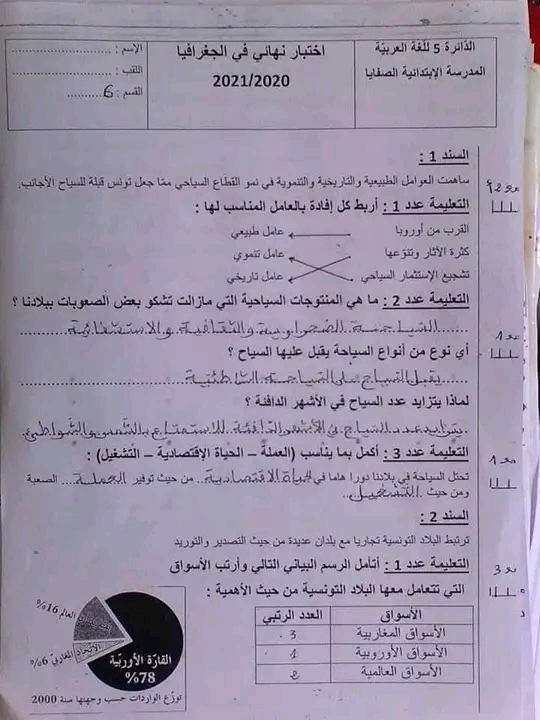 الدائرة 5 للغة العربيّة
المدرسة الإبتدائية الصفايا
اختبار نهائي في الجغرافيا
2021/2020
الإسم : ..........................
اللقب : ..........................
القسم : 6..........
السند 1 :
ساهمت العوامل الطبيعية والتاريخية والتنموية في نمو القطاع السياحي ممّا جعل تونس قبلة للسياح الأجانب.
التعليمة عدد 1 : أربط كل إفادة بالعامل المناسب لها :
القرب من أوروبا عامل طبيعي
كثرة الآثار وتنوّعها عامل تنموي
تشجيع الإستثمار السياحي عامل تاريخي
التعليمة عدد 2 : ما هي المنتوجات السياحية التي مازالت تشكو بعض الصعوبات ببلادنا ؟
السياحة الصحراوية والثقافية والاستشفائية
مع1
أي نوع من أنواع السياحة يقبل عليها السياح ؟
يقبل السياح على السياحة الشاطئية
لماذا يتزايد عدد السياح في الأشهر الدافئة ؟
يتزايد عدد السياح في الأشهر الدافئة للاستمتاع بالشمس والشواطئ
التعليمة عدد 3 : أكمل بما يناسب (العملة – الحياة الإقتصادية – التشغيل) :
مع1
تحتل السياحة في بلادنا دورا هاما في الحياة الاقتصادية.. من حيث توفير العملة... الصعبة
ومن حيث ..التشغيل..
السند 2 :
ترتبط البلاد التونسية تجاريا مع بلدان عديدة من حيث التصدير والتوريد
التعليمة عدد 1 : أتأمل الرسم البياني التالي وأرتب الأسواق
مع3
التي تتعامل معها البلاد التونسية من حيث الأهمية :
الأسواق العدد الرتبي
الأسواق المغاربية 3
الأسواق الأوروبية 1
الأسواق العالمية 2
العالم 16%
الاتحاد المغاربي 6%
القارّة الأوربّية
78%
توزّع الواردات حسب وجهتها سنة 2000